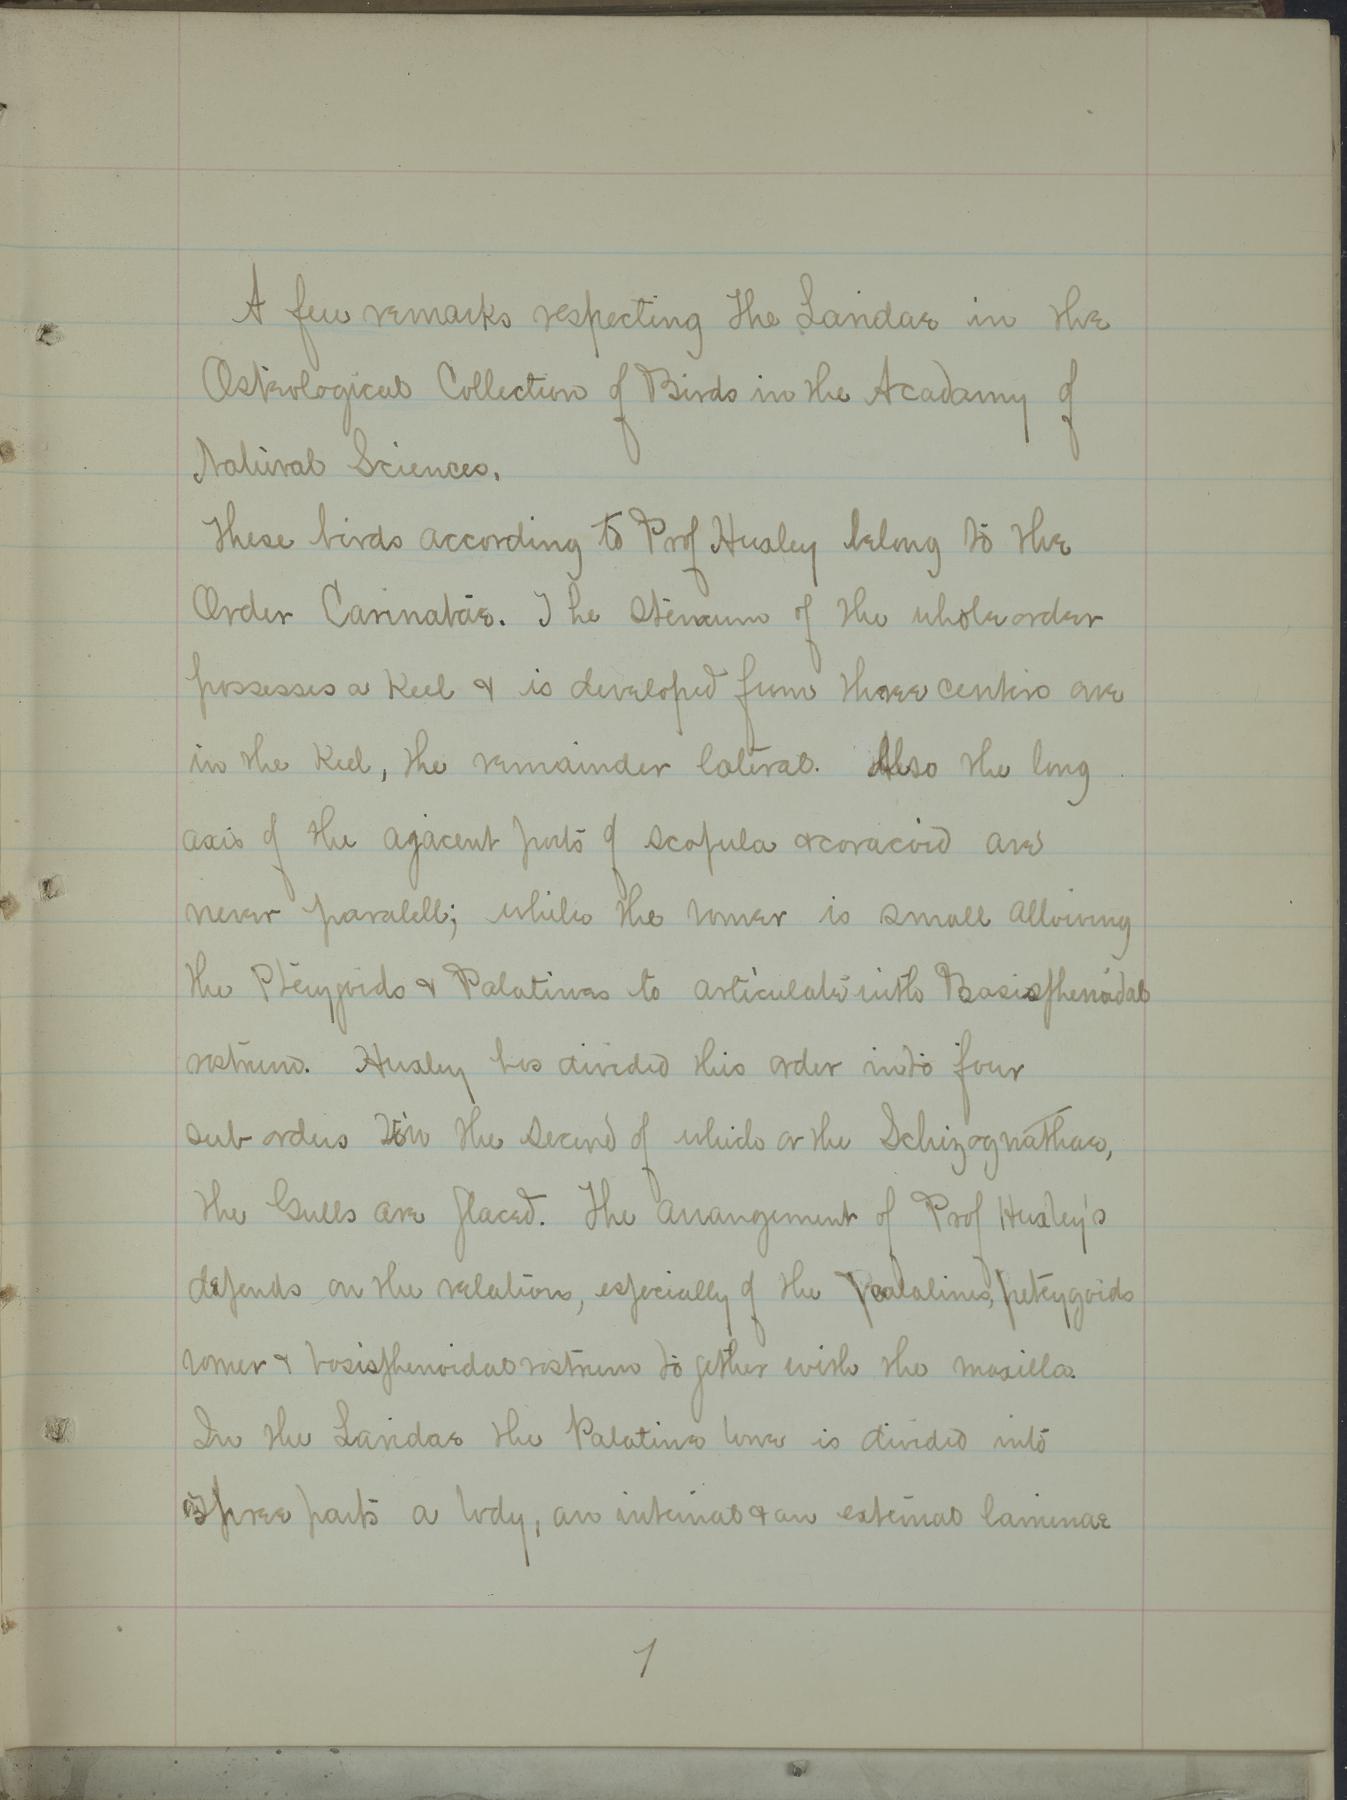 A few remarks respecting the Laridae in the
Osteological Collection of Birds in the Acadamy of
Natural Sciences.
These birds according to Prof Huxley belong to the
Order Carinatae. The sternum of the whole order
possesses a keel & is developed from three centers one
in the keel, the remainder lateral. Also the long
axis of the ajacent parts of scapula & coracoid are
never paralell; while the vomer is small allowing
the Pterygoids & Palatines to articulate with Basisphenoidal
rostrum. Huxley has divided this order into four
sub orders in the second of which or the Schizognathae,
the Gulls are placed. The arrangement of Prof Huxley's
depends on the relation, especially of the palatines, peterygoids
vomer & basisphenoidal rostrum together with the maxilla.
In the Laridae the Palatine bone is divided into
three parts a body, an internal & an external laminae
1